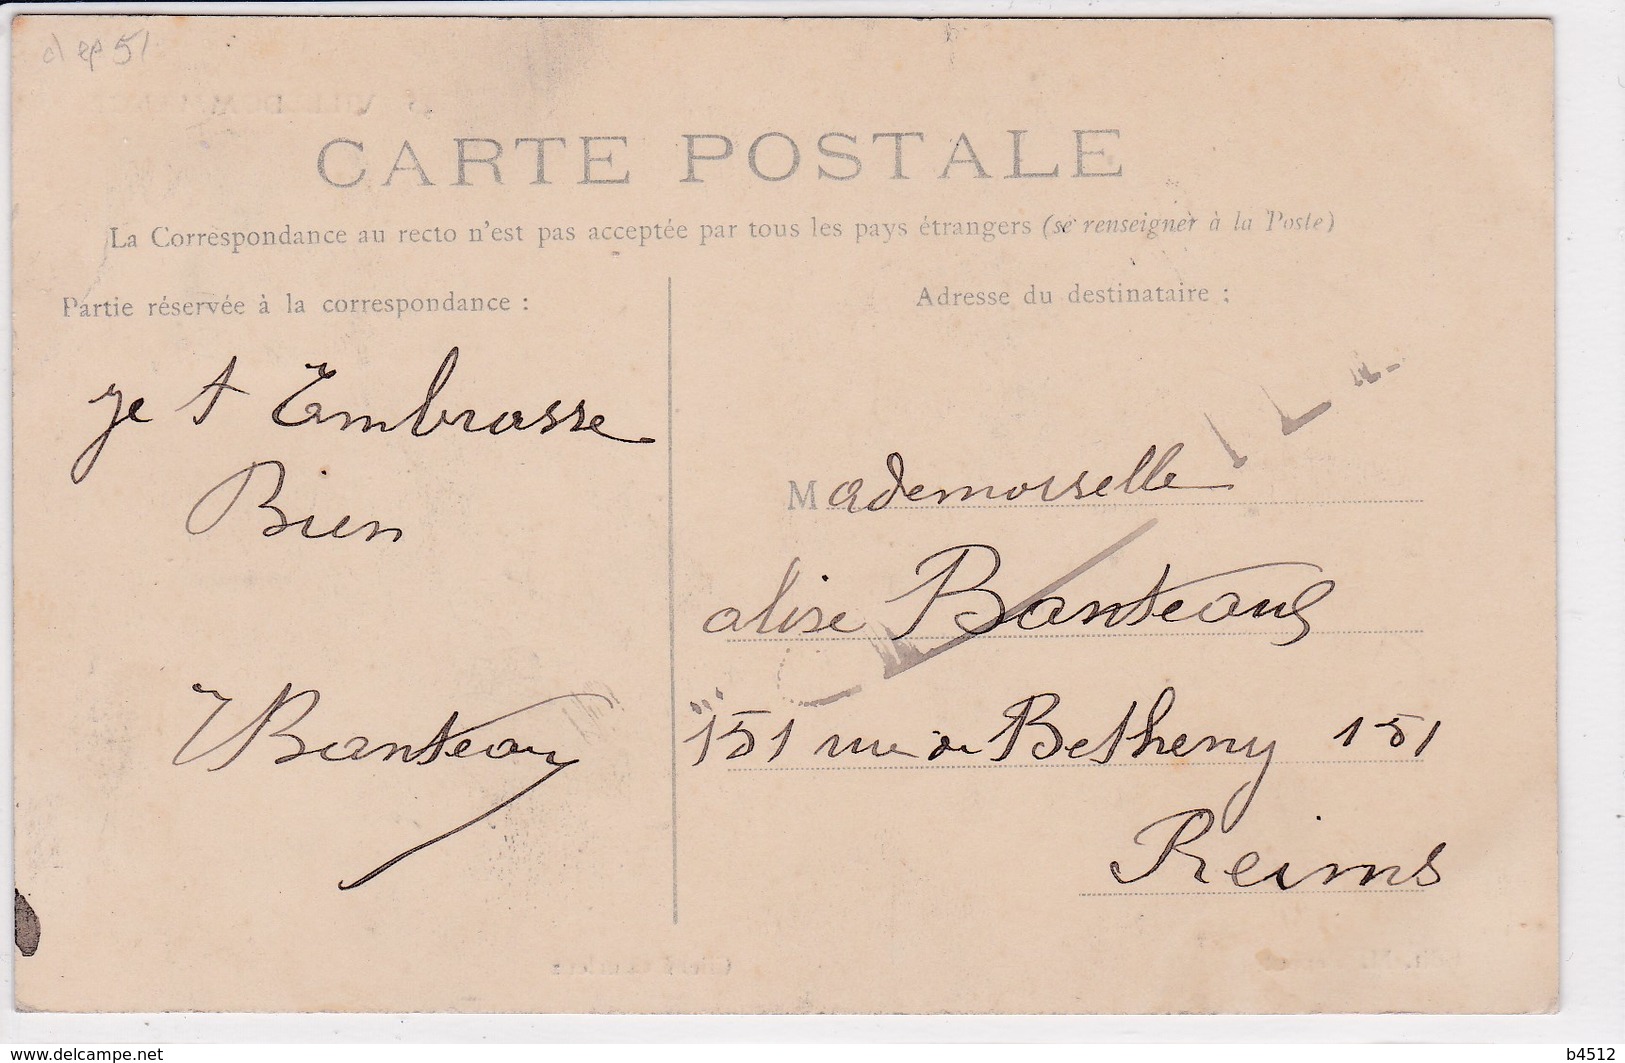 dep 51
CARTE POSTALE
La Correspondance au recto n'est pas acceptée par tous les pays étrangers (se renseigner à la Poste)
Partie réservée à la correspondance :
Adresse du destinataire :
je t Embrasse
Bien
Banteau
Mademoiselle
alise Banteaux
151 rue de Betheny 151
Reims
www.delcampe.net
b4512